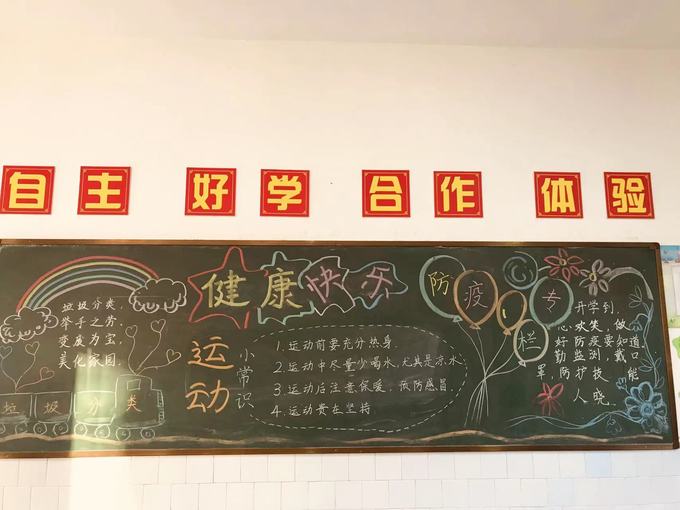 自主 好学 合作 体验
健康快乐
垃圾分类,
举手之劳
变废为宝,
美化家园.
垃圾分类
运动
小常识
1.运动前要充分热身.
2.运动中尽量少喝水,尤其是凉水.
3.运动后注意保暖,预防感冒.
4.运动贵在坚持
防疫专栏
开学到,
心欢笑,做
好防疫要知道
勤监测戴口
罩,防护技能
人晓.